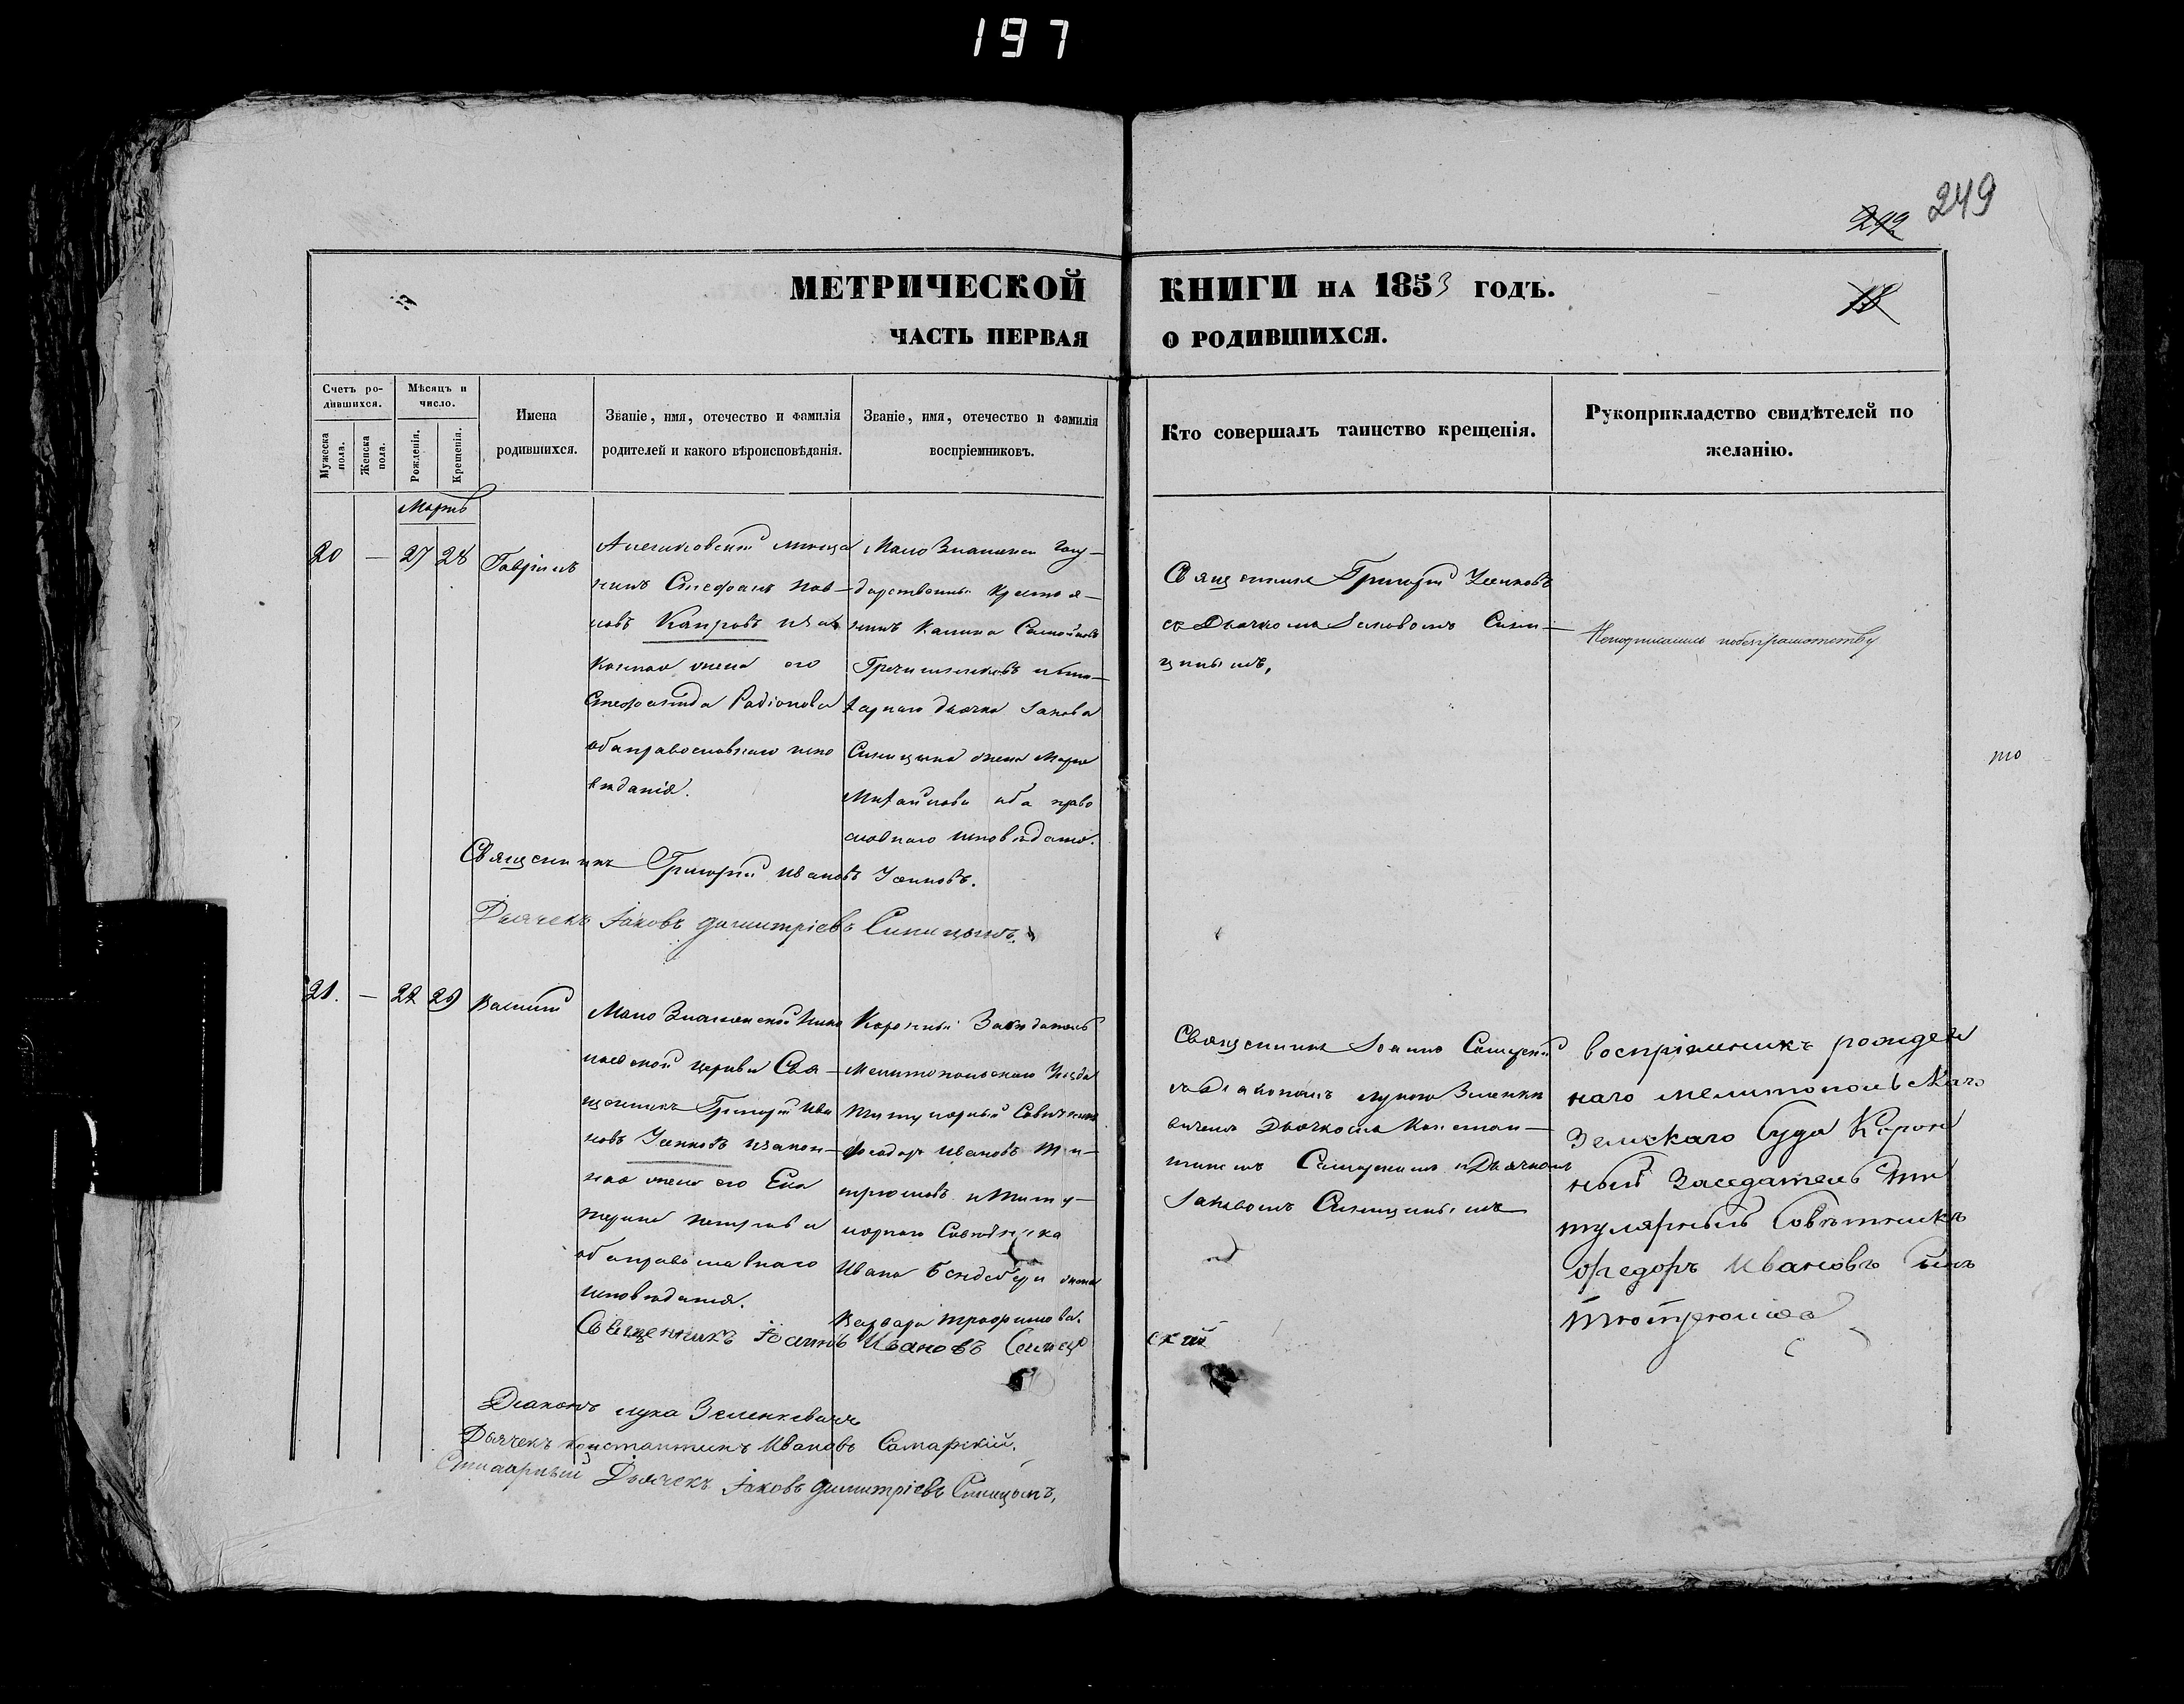 197
249
292
МЕТРИЧЕСКОЙ КНИГИ НА 1853 ГОДЪ.
ЧАСТЬ ПЕРВАЯ О РОДИВШИХСЯ.
Счетъ ро-
дившихся.
Мужеска пола.
Женска пола.
Мѣсяцъ и
число.
Рожденія.
Крещенія.
Имена
родившихся.
Званіе, имя, отечество и фамилія
родителей и какого вѣроисповѣданія.
Званіе, имя, отечество и фамилія
воспріемниковъ.
Кто совершалъ таинство крещенія.
Рукоприкладство свидѣтелей по
желанію.
Мартъ
20 — 27 28
Гавріилъ
Алешковскій мѣща
нинъ Стефанъ Пав-
ловъ Капровъ и за
конная жена его
Стефанида Радіонова
оба православнаго испо
вѣданія.
Мало Знаменки Госу-
дарственный Крестья-
нинъ Калина Самойловъ
Гречишниковъ и ста-
Іакова
Синицына жена Марѳа
Михайлова оба право
славнаго исповѣданія.
Священникъ Григорій Усенковъ
съ Дьячкомъ Іаковомъ Сини-
цынымъ,
Неподписались побезграмотству
то
Священникъ Григорій Ивановъ Усенковъ.
Дьячекъ Іаковъ Димитріевъ Синицынъ.
21. — 22 29
Василій
Мало Знаменской Нико
лаевской церкви Свя-
щенникъ Григорій Ива
новъ Усенковъ и закон-
ная жена его Ека
терина Петрова
оба православнаго
исповѣданія.
Коронный Засѣдатель
Мелитопольскаго Уѣзда
Титулярный Совѣтникъ
Феодоръ Ивановъ Тю-
трюмовъ и Титу-
лярнаго Совѣтника
Ивана жена
Варвара Трофимова.
Священникъ Іоаннъ
съ Діакономъ Лукою Зеленке
вичемъ Дьячкомъ Констан-
тиномъ Самарскимъ и Дьячкомъ
Іаковомъ Синицынымъ
воспріемникъ рожден
наго мелитопольскаго
Земскаго Суда Корон
ный Заседатель Ти
тулярный Совѣтникъ
Феодоръ Ивановъ сынъ
Тютрюмовъ
Священникъ Іоаннъ Ивановъ
скій
Діаконъ Лука Зеленкевичъ
Дьячекъ Константинъ Ивановъ Самарскій.
Дьячекъ Іаковъ Димитріевъ Синицынъ,